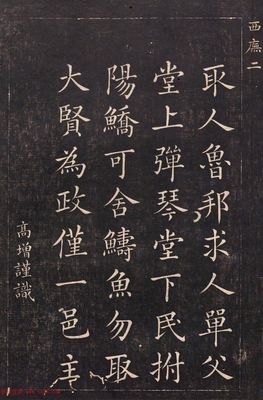 西廡二
取人魯邦求人單父
堂上彈琴堂下民拊
陽鱎可舍鱄魚勿取
大賢為政僅一邑主
高增謹識